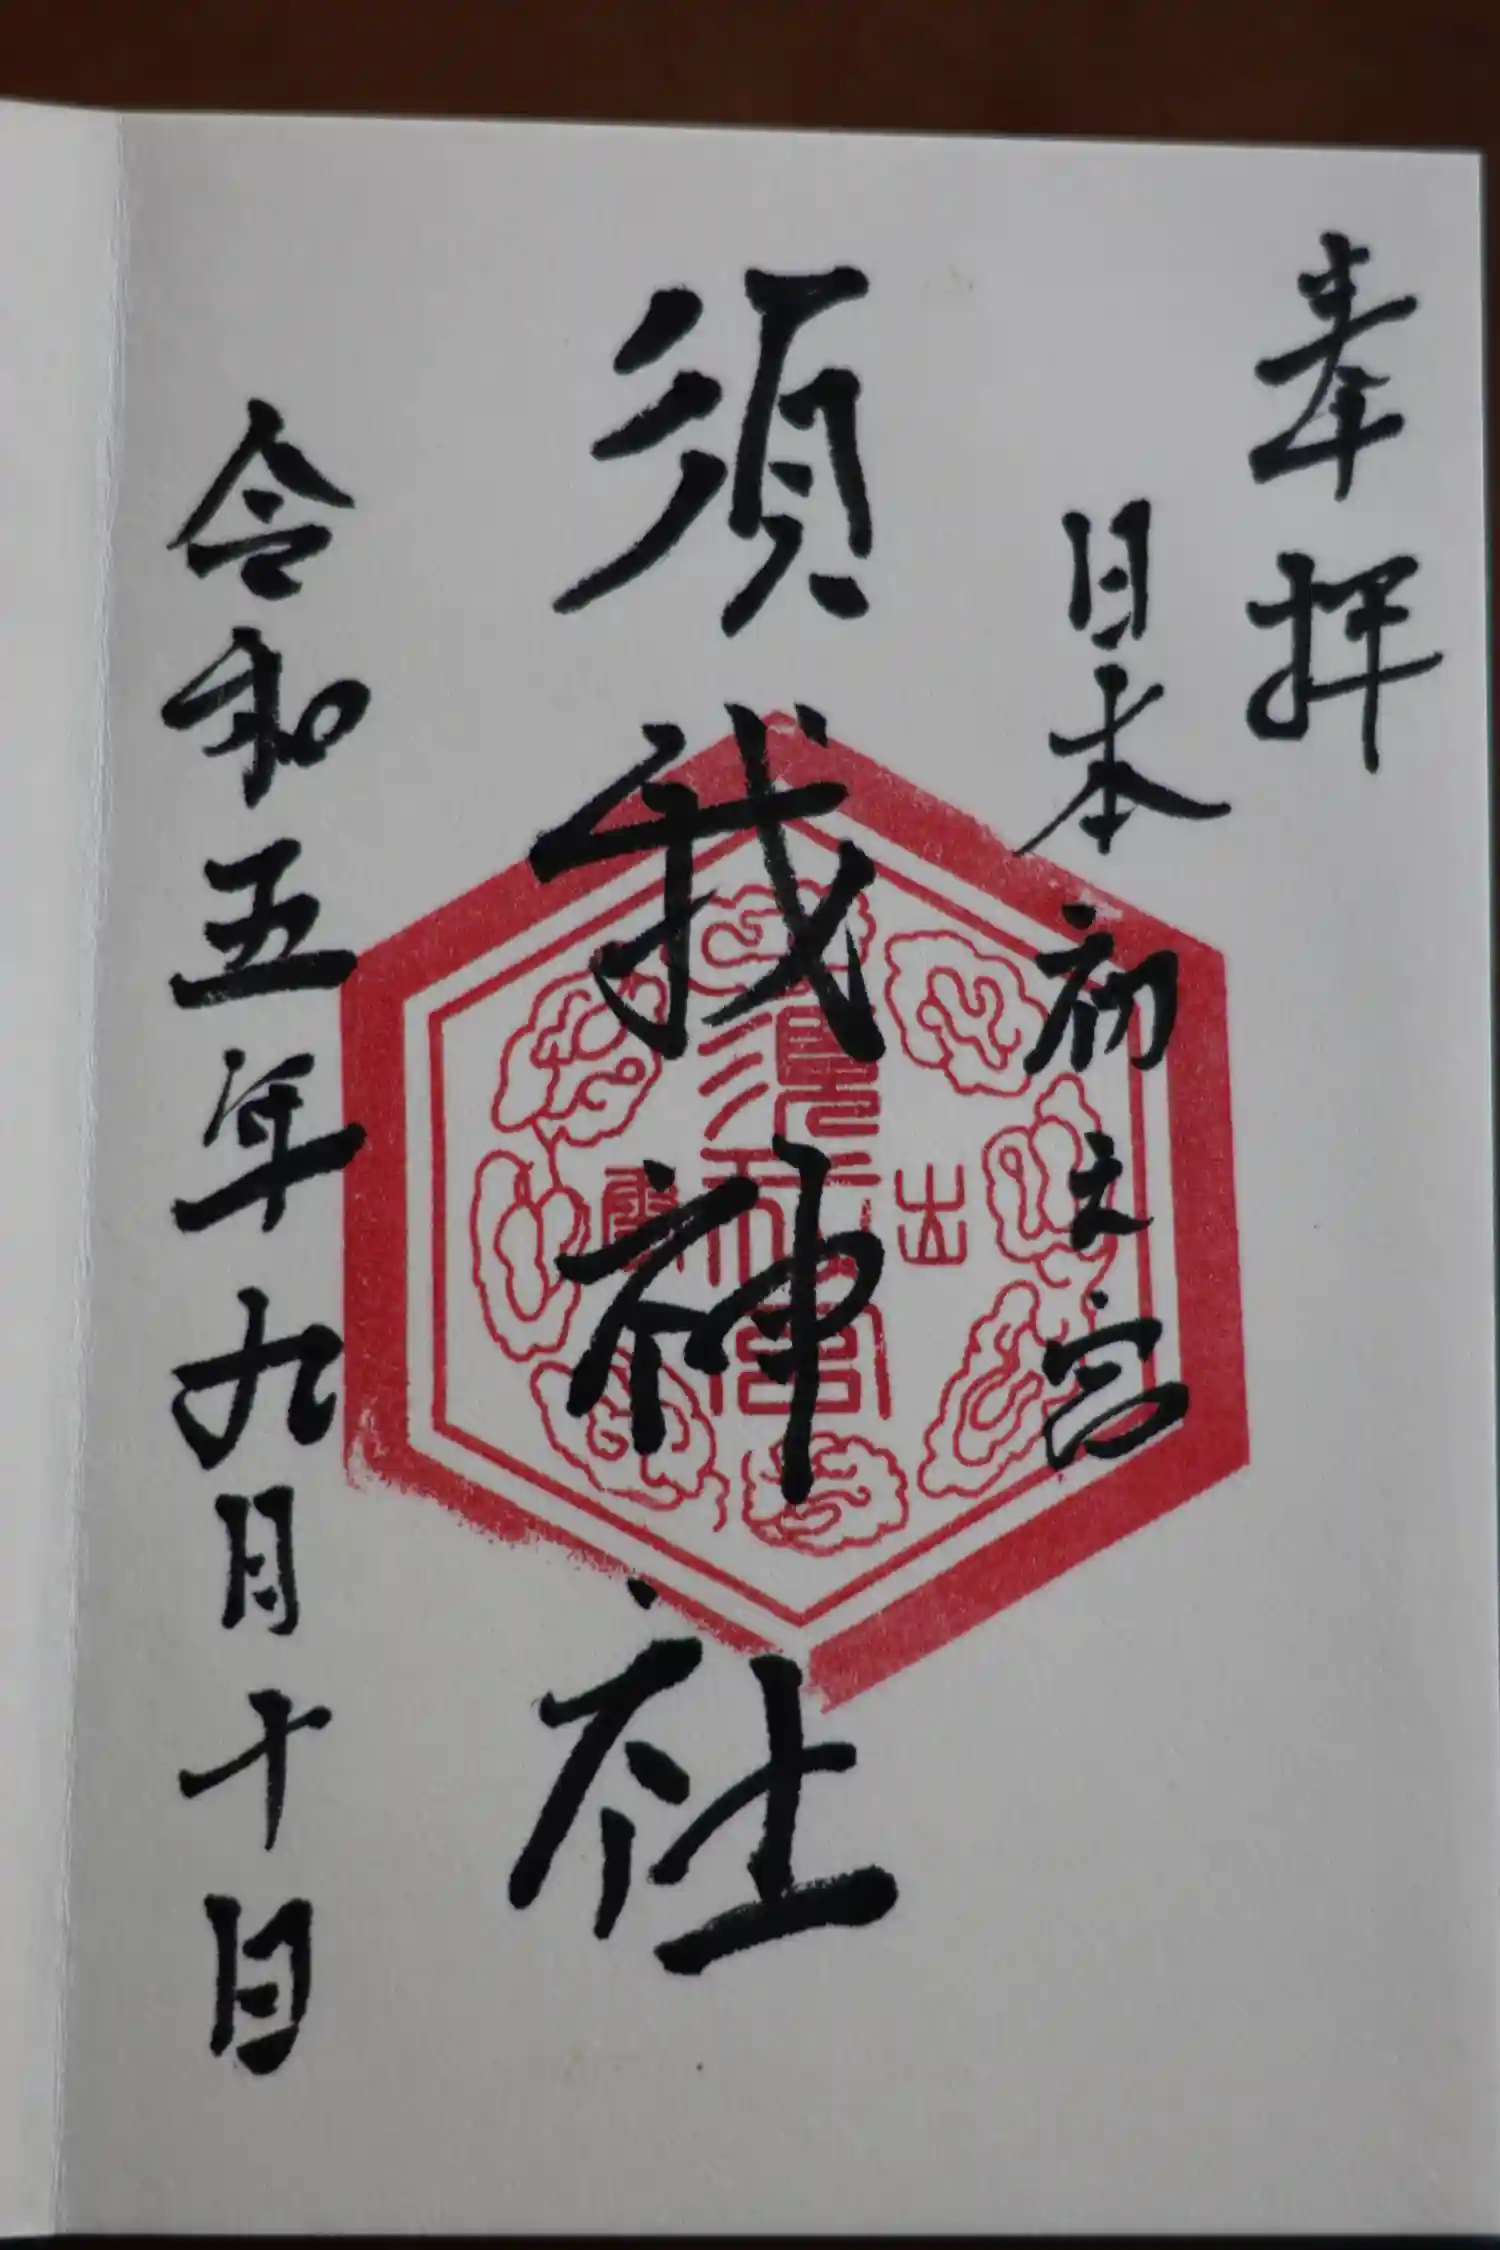 奉拝
日本初之宮
須我神社
出雲
須我神社
令和五年九月十日